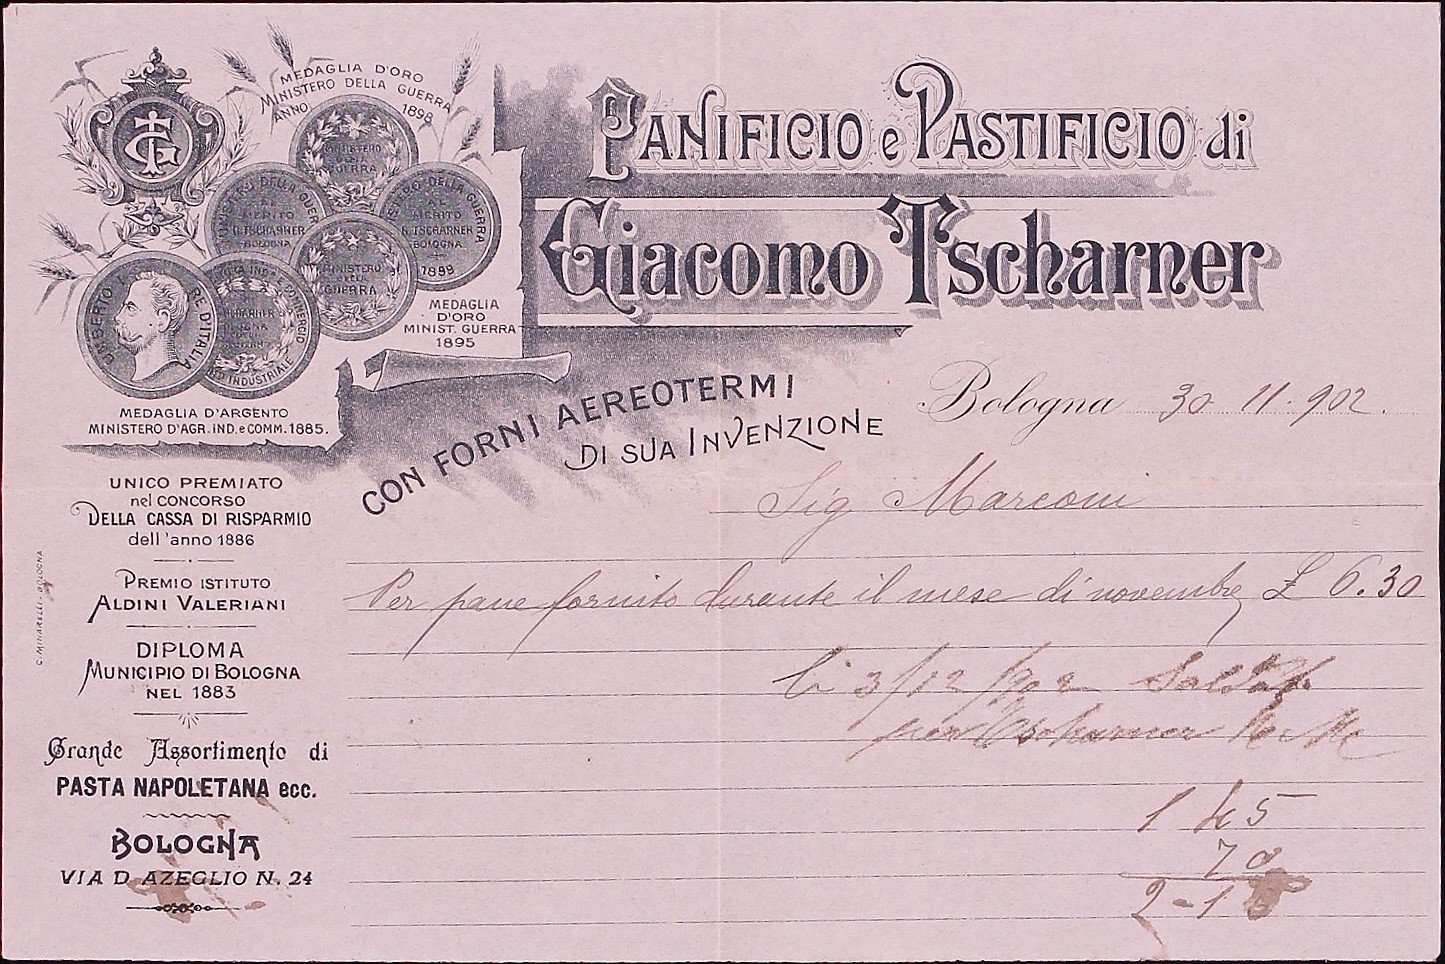 MEDAGLIA D'ORO
MINISTERO DELLA GUERRA
ANNO 1898
MINISTERO
DELLA
GUERRA
MINISTERO DELLA GUERRA
AL
MERITO
G. TSCHARNER
BOLOGNA
MINISTERO DELLA GUERRA
AL
MERITO
G. TSCHARNER
BOLOGNA
1899
MINISTERO
DELLA
GUERRA
MEDAGLIA
D'ORO
MINIST. GUERRA
1895
UMBERTO I RE D'ITALIA
MEDAGLIA D'ARGENTO
MINISTERO D'AGR. IND. e COMM. 1885.
PANIFICIO e PASTIFICIO di
Giacomo Tscharner
CON FORNI AEREOTERMI
DI SUA INVENZIONE
Bologna 30 11. 902.
Sig Marconi
Per pane fornito durante il mese di novembre £ 6.30
li 3/12/902 Saldato
per Tscharner
1 45
70
2-15
UNICO PREMIATO
nel CONCORSO
DELLA CASSA DI RISPARMIO
dell'anno 1886
PREMIO ISTITUTO
ALDINI VALERIANI
DIPLOMA
MUNICIPIO DI BOLOGNA
NEL 1883
Grande Assortimento di
PASTA NAPOLETANA ecc.
BOLOGNA
VIA D AZEGLIO N. 24
C. MINARELLI - BOLOGNA